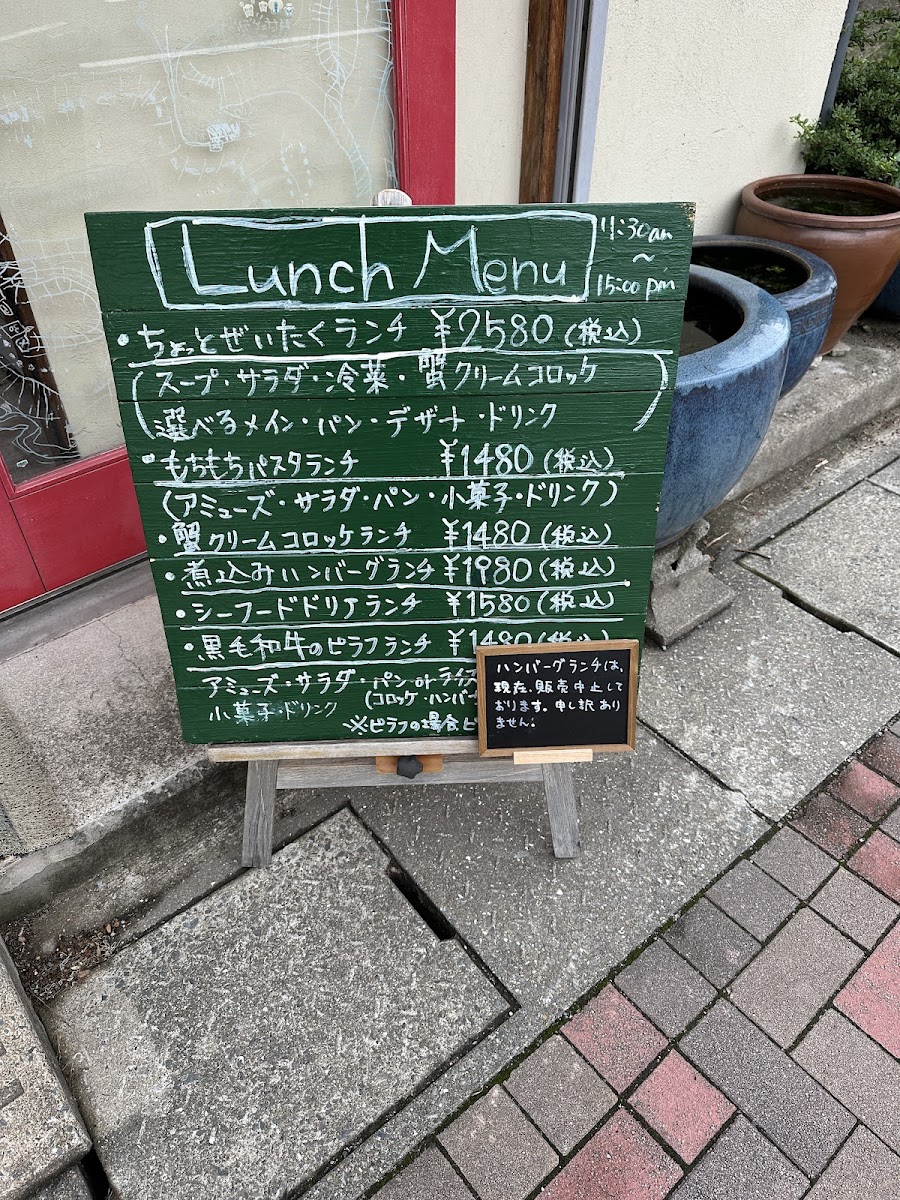 Lunch Menu
11:30am
~
15:00 pm
・ちょっとぜいたくランチ ¥2580(税込)
(スープ・サラダ・冷菜・蟹クリームコロッケ
選べるメイン・パン・デザート・ドリンク)
・もちもちパスタランチ ¥1480(税込)
(アミューズ・サラダ・パン・小菓子・ドリンク)
・蟹クリームコロッケランチ ¥1480(税込)
・煮込みハンバーグランチ ¥1980(税込)
・シーフードドリアランチ ¥1580(税込)
・黒毛和牛のピラフランチ ¥1480(税込)
アミューズ・サラダ・パン or ライス
(コロッケ・ハンバー
小菓子・ドリンク
※ピラフの場合、ピ
ハンバーグランチは、
現在、販売中止して
おります。申し訳あり
ません。